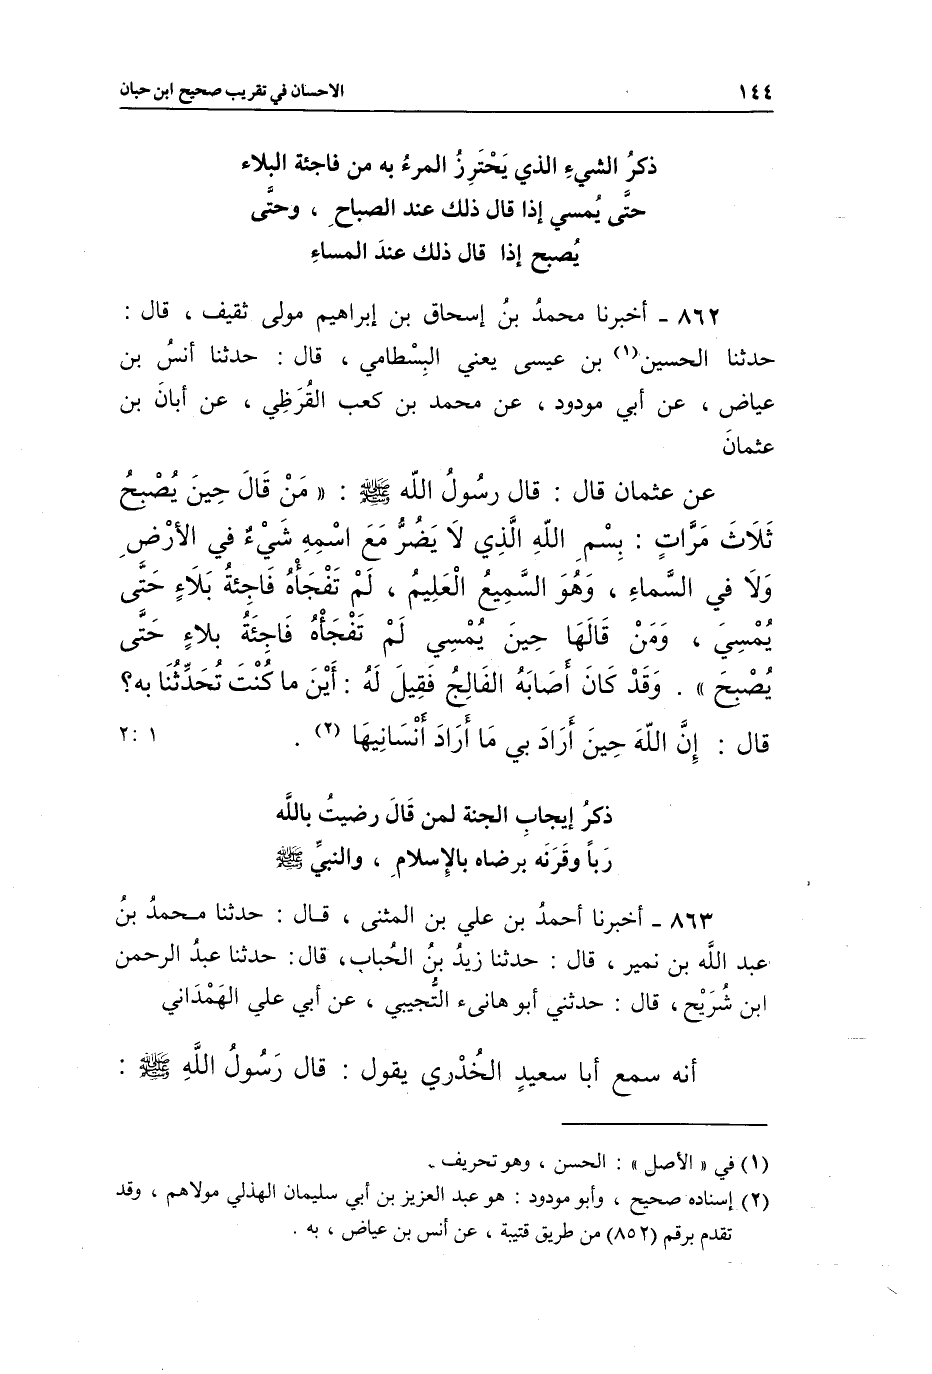 ١٤٤ الاحسان في تقريب صحيح ابن حبان
ذكرُ الشيءِ الذي يَحْتَرِزُ المرءُ به من فاجئة البلاء
حتَّى يُمسي إذا قال ذلك عند الصباحِ ، وحتَّى
يُصبح إذا قال ذلك عندَ المساءِ
٨٦٢ ـ أخبرنا محمدُ بنُ إسحاق بن إبراهيم مولى ثقيف ، قال :
حدثنا الحسين(١) بن عيسى يعني البِسْطامي ، قال : حدثنا أنسُ بن
عياض ، عن أبي مودود ، عن محمد بن كعب القُرَظِي ، عن أبانَ بن
عثمانَ
عن عثمان قال : قال رسُولُ اللّه ﷺ : « مَنْ قَالَ حِينَ يُصْبِحُ
ثَلَاثَ مَرَّاتٍ : بِسْمِ اللّهِ الَّذِي لَا يَضُرُّ مَعَ اسْمِهِ شَيْءٌ في الأرْضِ
وَلَا في السَّماءِ ، وَهُوَ السَّمِيعُ الْعَلِيمُ ، لَمْ تَفْجَأْهُ فَاجِئَةُ بَلَاءٍ حَتَّى
يُمْسِيَ ، وَمَنْ قَالَهَا حِينَ يُمْسِي لَمْ تَفْجَأْهُ فَاجِئَةُ بلاءٍ حَتَّى
يُصْبِحَ » . وَقَدْ كَانَ أَصَابَهُ الفَالِجُ فَقِيلَ لَهُ : أَيْنَ ما كُنْتَ تُحَدِّثُنَا به؟
قال : إِنَّ اللّهَ حِينَ أَرَادَ بي مَا أَرَادَ أَنْسَانِيهَا (٢) . ١ :٢
ذكرُ إيجابِ الجنة لمن قَالَ رضيتُ باللَّه
رَباً وقَرَنَه برضاه بالإسلامِ ، والنبيِّ ﷺ
٨٦٣ ـ أخبرنا أحمدُ بن علي بن المثنى ، قال : حدثنا محمدُ بنُ
عبد اللَّه بن نمير ، قال : حدثنا زيدُ بنُ الحُباب، قال: حدثنا عبدُ الرحمن
ابن شُرَيْح، قال : حدثني أبو هانىء التُّجيبي ، عن أبي علي الهَمْدَاني
أنه سمع أبا سعيدٍ الخُدْري يقول : قال رَسُولُ اللَّهِ ﷺ :
(١) في « الأصل » : الحسن ، وهو تحريف .
(٢) إسناده صحيح ، وأبو مودود : هو عبد العزيز بن أبي سليمان الهذلي مولاهم ، وقد
تقدم برقم (٨٥٢) من طريق قتيبة ، عن أنس بن عياض ، به .